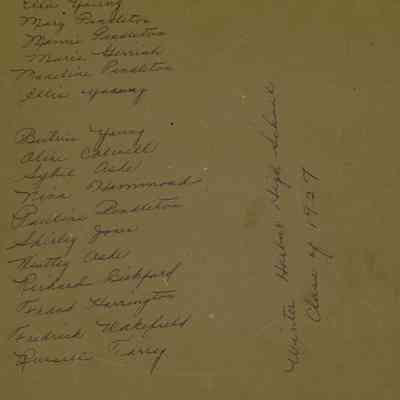 Ella Young
Mary Pendleton
Mamie Pendleton
Marie Gerrish
Madeline Pendleton
Ellis Young
Beatrice Young
Olive Colwell
Sybil Ashe
Nina Hammond
Pauline Pendleton
Shirley Jones
Ashe
Richard Bickford
Frank Harrington
Fredrick Wakefield
Russell Torrey
Winter Harbor High School
Class of 1927